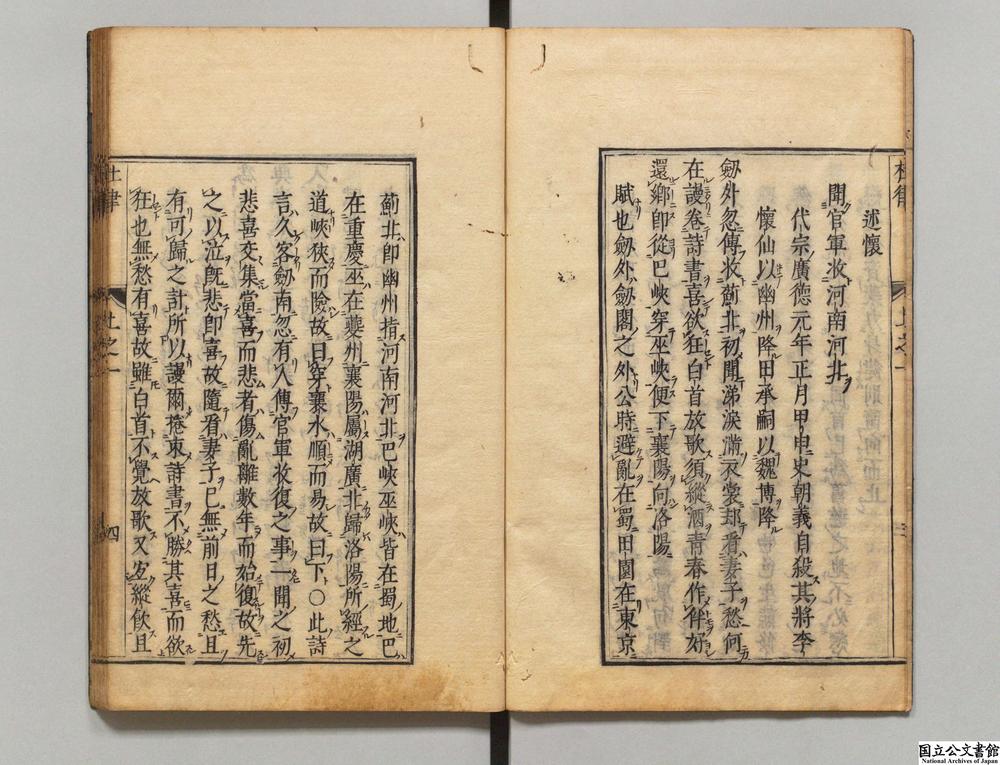 述懷
聞官軍收河南河北
代宗廣德元年正月甲申史朝義自殺其將李
懷仙以幽州降田承嗣以魏博降
劒外忽傳收薊北初聞涕淚滿衣裳却看妻子愁何
在謾卷詩書喜欲狂白首放歌須縱酒青春作伴好
還鄉即從巴峽穿巫峽便下襄陽向洛陽
賦也劒外劒閣之外公時避亂在蜀田園在東京
薊北即幽州指河南河北巴峽巫峽皆在蜀地巴
在重慶巫在夔州襄陽屬湖廣北歸洛陽所經之
道峽狹而險故曰穿襄水順而易故曰下○此詩
言久客劒南忽有人傳官軍收復之事一聞之初
悲喜交集當喜而悲者傷亂離數年而始復故先
之以泣既悲即喜故隨看妻子已無前日之愁且
有可歸之計所以謾爾捲束詩書不勝其喜而欲
狂也無愁有喜故雖白首不覺放歌又宜縱飲且
杜律
上之一
四
国立公文書館
National Archives of Japan